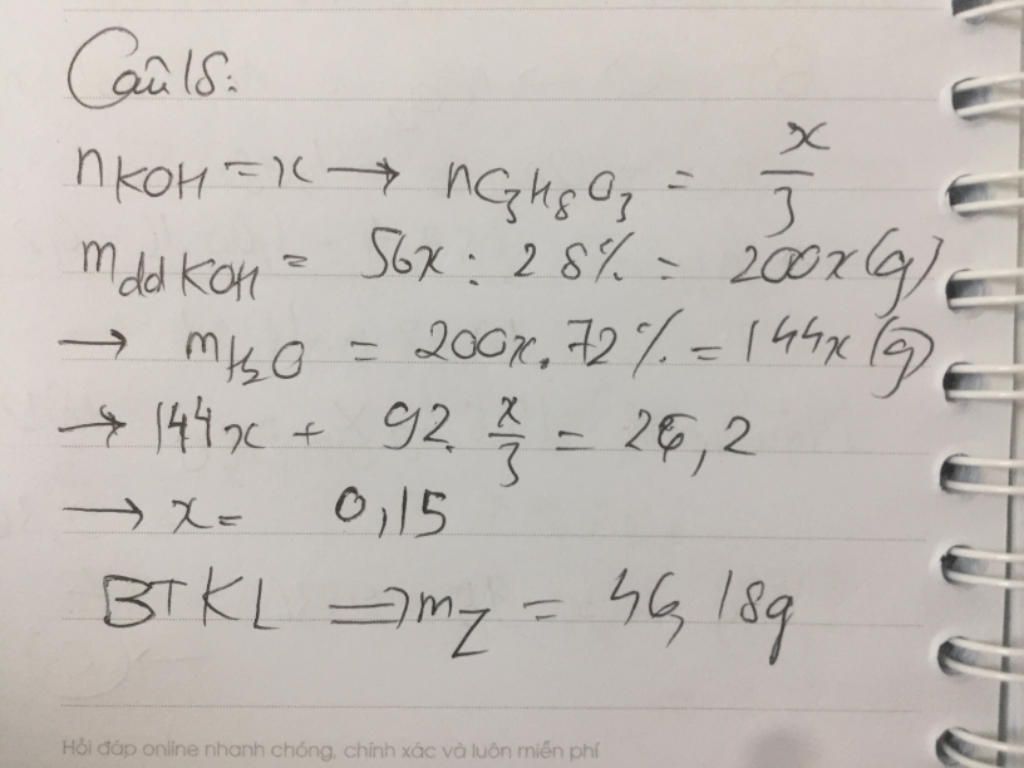 Câu 18:
nKOH = x → nC3H8O3 = x/3
mddKOH = 56x : 28% = 200x (g)
→ mH2O = 200x. 72% = 144x (g)
→ 144x + 92. x/3 = 26,2
→ x = 0,15
BTKL => mZ = 46,18g
Hỏi đáp online nhanh chóng, chính xác và luôn miễn phí